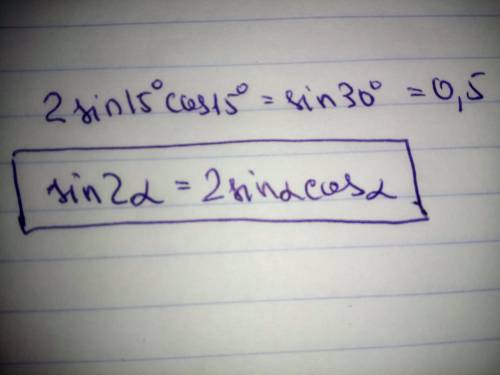 2sin15°cos15° = sin30° = 0,5
sin2α = 2sinαcosα